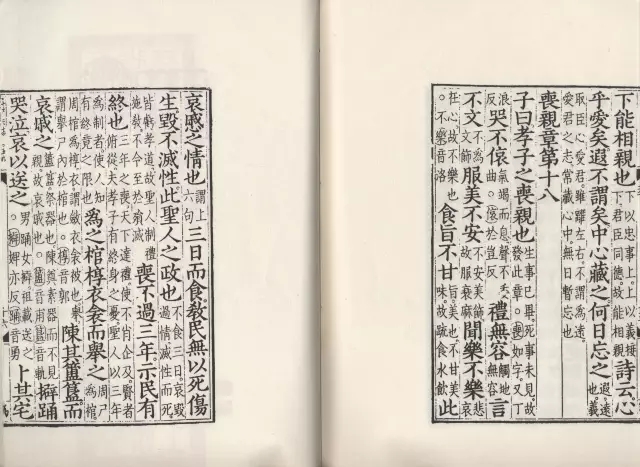 下能相親也下以忠事上上以義接下君臣同德故能相親詩云心
乎愛矣遐不謂矣中心藏之何日忘之遐遠也義
取臣心愛君雖離左右不謂為遠愛君之志常藏心中無日暫忘也
喪親章第十八
子曰孝子之喪親也生事已畢死事未見故發此章喪如字又丁
浪反哭不偯氣竭而息聲不委曲偯於豈反禮無容觸地無容言
不文不為文飾服美不安不安美飾故服衰麻聞樂不樂悲哀
在心故不樂也不樂音洛食旨不甘旨美也不甘美味故疏食水飲此
哀慼之情也謂上六句三日而食教民無以死傷
生毀不滅性此聖人之政也不食三日哀毀過情滅性而死
皆虧孝道故聖人制禮施教不令至於殞滅喪不過三年示民有
終也三年之喪天下達禮使不肖企及賢者俯從夫孝子有終身之憂聖人以三年
為制者使人知有終竟之限也為之棺椁衣衾而舉之周尸為棺
周棺為椁衣謂斂衣衾被也舉謂舉尸內於棺也椁音郭陳其簠簋而
哀慼之簠簋祭器也陳奠素器而不見親故哀慼也簠音甫簋音軌擗踊
哭泣哀以送之男踊女擗祖載送之擗婢亦反踊音勇卜其宅